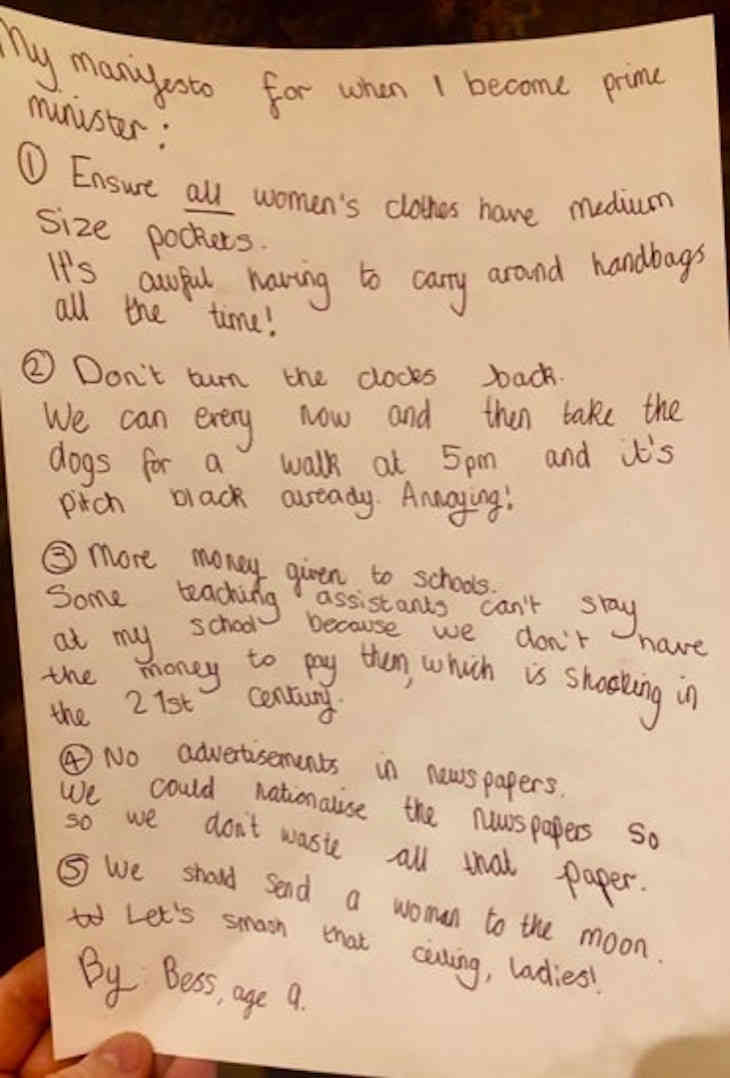 My manifesto for when I become prime
minister:
① Ensure all women's clothes have medium
size pockets.
It's awful having to carry around handbags
all the time!
② Don't turn the clocks back.
We can every now and then take the
dogs for a walk at 5pm and it's
pitch black already. Annoying!
③ More money given to schools.
Some teaching assistants can't stay
at my school because we don't have
the money to pay them, which is shocking in
the 21st century.
④ No advertisements in newspapers.
We could nationalise the newspapers so
so we don't waste all that paper.
⑤ We should send a woman to the moon.
Let's smash that ceiling, ladies!
By: Bess, age 9.